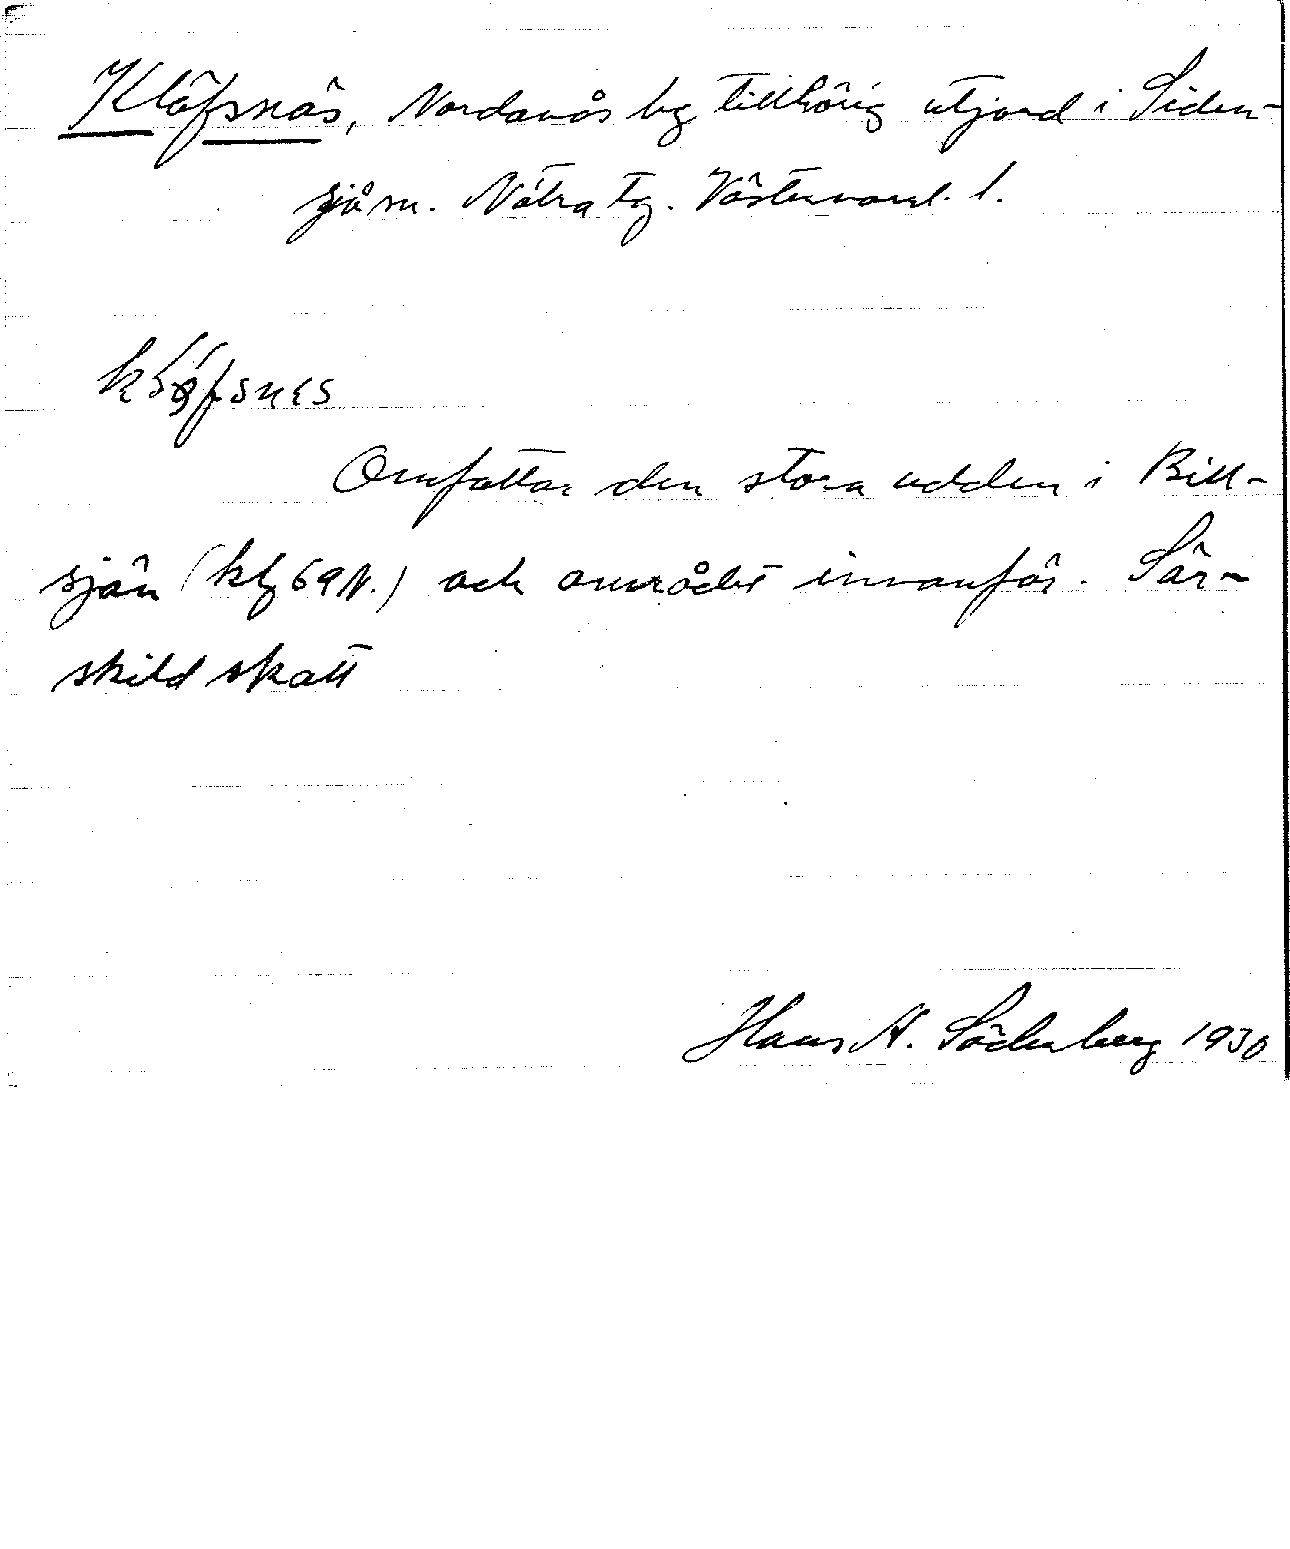 Klöfsnäs, Nordanås by tillhörig utjord i Siden-
sjö sn. Nätra tg. Västernorrl. l.
Omfattar den stora udden i Bill-
sjön (kbl 69 N.) och området innanför. Sär-
skild skatt
Hans N. Söderberg 1930